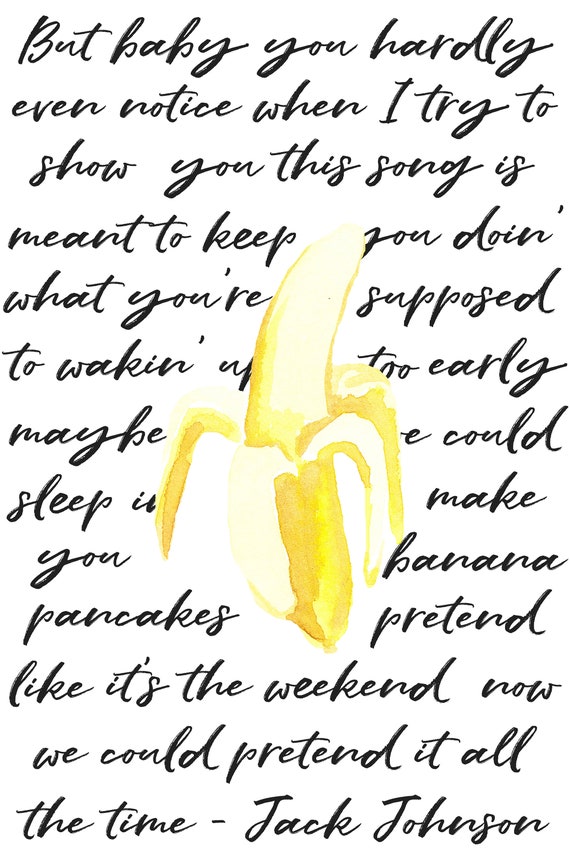 But baby you hardly
even notice when I try to
show you this song is
meant to keep you doin'
what you're supposed
to wakin' up too early
maybe e could
sleep in make
you banana
pancakes pretend
like it's the weekend now
we could pretend it all
the time - Jack Johnson